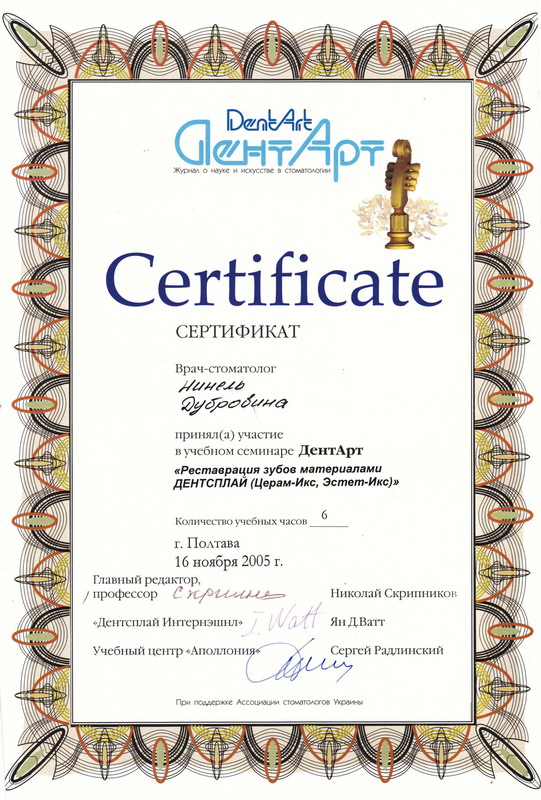 DentArt
ДентАрт
Журнал о науке и искусстве в стоматологии
Certificate
СЕРТИФИКАТ
Врач-стоматолог
Нинель
Дубровина
принял(а) участие
в учебном семинаре ДентАрт
«Реставрация зубов материалами
ДЕНТСПЛАЙ (Церам-Икс, Эстет-Икс)»
Количество учебных часов 6
г. Полтава
16 ноября 2005 г.
Главный редактор,
профессор Николай Скрипников
«Дентсплай Интернэшнл» I. Watt Ян Д.Ватт
Учебный центр «Аполлония» Сергей Радлинский
При поддержке Ассоциации стоматологов Украины